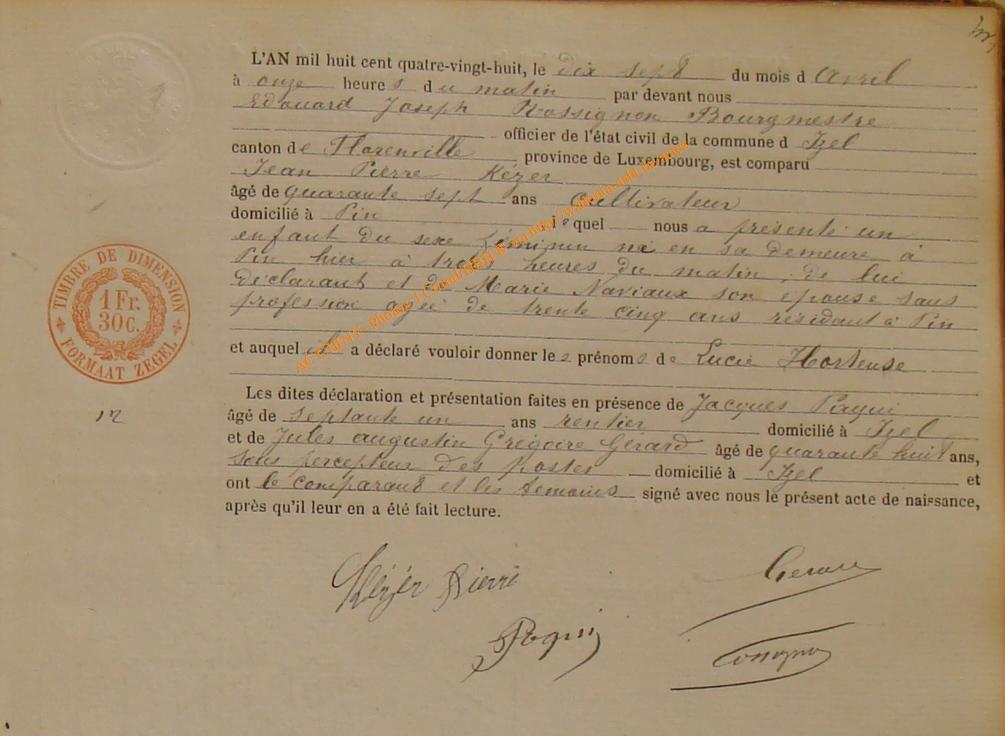 L'AN mil huit cent quatre-vingt-huit, le dix sept du mois d avril
à onze heures du matin par devant nous
Edouard Joseph Rossignon Bourgmestre
officier de l'état civil de la commune d Izel
canton de Florenville province de Luxembourg, est comparu
Jean Pierre Kézer
âgé de quarante sept ans cultivateur
domicilié à Pin lequel nous a présenté un
enfant du sexe féminin né en sa demeure à
Pin hier à trois heures du matin, de lui
déclarant et de Marie Naviaux son épouse sans
profession agée de trente cinq ans résidant à Pin
et auquel a déclaré vouloir donner les prénoms de Lucie Hortense
Les dites déclaration et présentation faites en présence de Jacques Paqui
âgé de septante un ans rentier domicilié à Izel
et de Jules augustin Grégoire Gérard âgé de quarante huit ans,
sous percepteur des postes domicilié à Izel et
ont le comparant et les témoins signé avec nous le présent acte de naissance,
après qu'il leur en a été fait lecture.
TIMBRE DE DIMENSION
1 Fr.
30c.
FORMAAT ZEGEL
12
Kézér Pierre
Gerard
Paqui